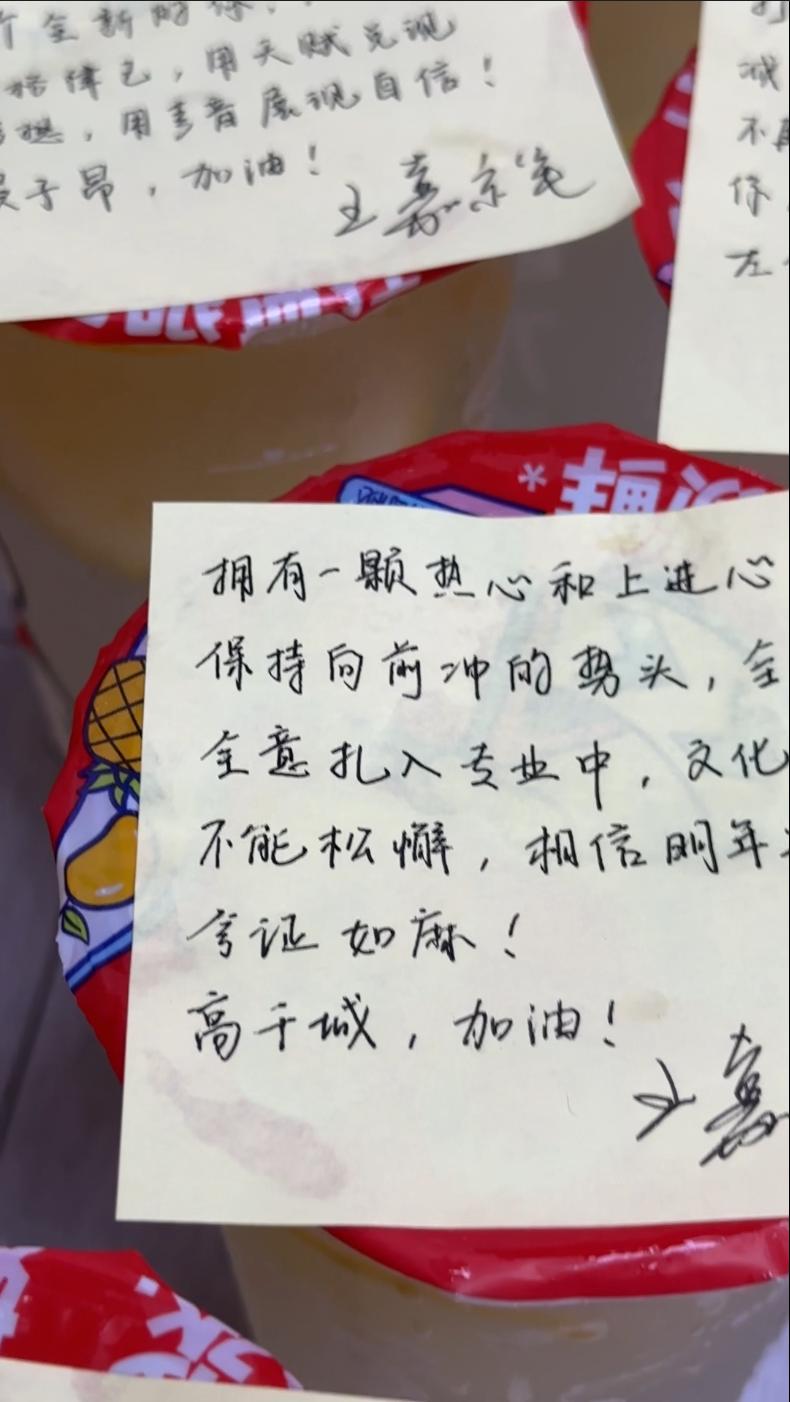 个全新的你！
律己，用天赋兑现
想，用声音展现自信！
子昂，加油！
王嘉
减
不再
你
左
拥有一颗热心和上进心
保持向前冲的势头，全
全意扎入专业中，文化
不能松懈，相信明年
合证如麻！
高千城，加油！
王嘉